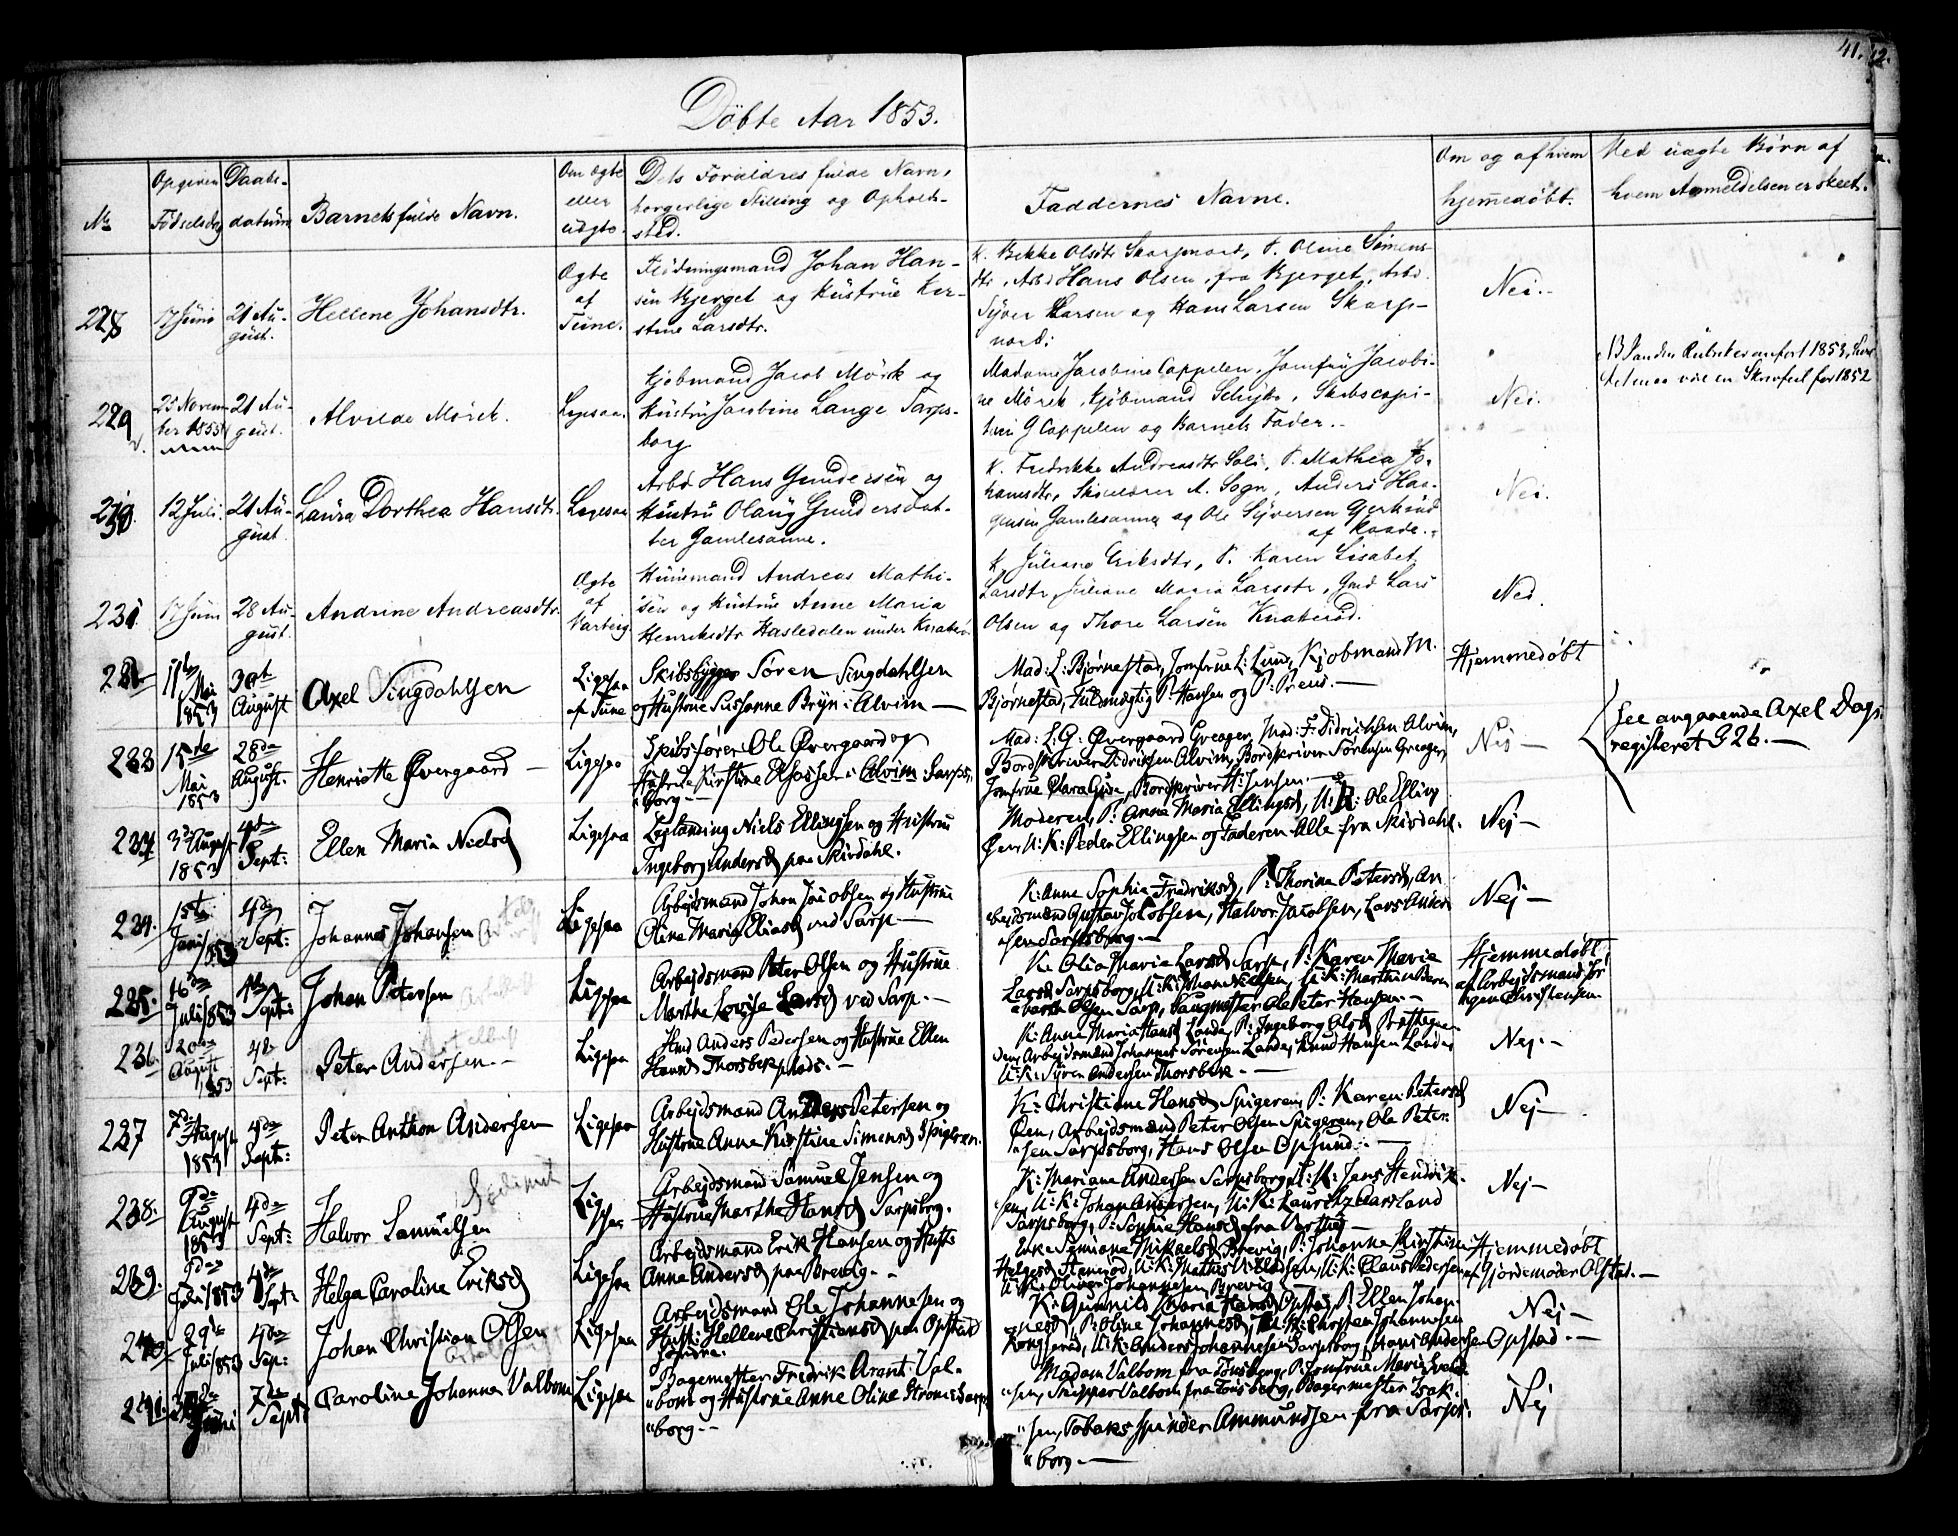 41.
Döbte Aar 1853.
No
Opgiven Födselsdag
Daabs-datum
Barnets fulde Navn.
Om ægte eller uægte.
Dets Forældres fulde Navn, borgerlige Stilling og Opholds-sted.
Faddernes Navne.
Om og af hvem hjemmedöbt.
Ved uægte Börn af hvem Anmeldelsen er skeet.
228
17 Juni
21 Au-
gust.
Hellene Johansdtr.
Ægte
af
Tune.
Flödningsmand Johan Han-
sen Bjerget og Hustrue Ker-
stine Larsdtr.
K. Bekke Olsdtr Skarpnord, P. Oline Simens-
dtr, Arb. Hans Olsen, fra Bjerget, Arb.
Syver Larsen og Hans Larsen Skarp-
nord.
Nei.
229
25 Novem
ber 1853
21 Au-
gust.
Alvilde Mörck.
Ligesaa
Kjöbmand Jacob Mörk og
Hustru Jacobine Lange Sarps-
borg
Madame Jacobine Cappelen, Jomfru Jacobi-
ne Mörck, Kjöbmand Schybe, Skibscapi-
tain G Cappelen og Barnets Fader.
Nei.
230
12 Juli.
21 Au-
gust
Laura Dorthea Hansdtr.
Ligesaa
Arbd Hans Gundersen og
Hustru Olaug Gundersdat-
ter Gamlesanne.
K. Fredrikke Andreasdtr Soli, P. Mathea Jo-
hansdtr, Skolelærer A. Sogn, Anders Haa-
gensen Gamlesanne og Ole Syversen
af Raade.
Nei.
231
17 Juni
28 Au-
gust.
Andrine Andreasdtr.
Ægte
af
Varteig
Huusmand Andreas Mathi-
sen og Hustrue Anne Maria
Henriksdtr Hasledalen under
K. Juliane Eriksdtr, P. Karen Lisabet
Larsdtr, Juliane Maria Larsdtr, Gmd Lars
Olsen og Thore Larsen Knateröd.
Nei.
11te
Mai
1853
30te
August
Axel Singdahlsen
Ligesaa
af Tune
Skibsbygger Sören Singdahlsen
og Hustrue Susanne Bryn i Alvim —
Mad: L: Björnestad, Jomfrue L: Lund, Kjobmand M.
Björnestad, Fuldmægtig P: Hansen og P: Preus. —
Hjemmedöbt
See angaaende Axel Dags
registeret S 26. —
233
15de
Mai
1853
28de
August.
Henriette Övergaard —
Ligesaa
Skibsförer Ole Övergaard og
Hustrue Kirstine Eliassen i Alvim Sarps-
borg —
Mad: L: G: Övergaard Greager, Mad: F: Didrichsen Alvim,
Bordskriver Didriksen Alvim, Bordskriver Sörensen Greager,
Jomfrue Clara Gude, Bordskriver H: Jensen. —
Nej —
234
3de August
1853
4de
Sept:
Ellen Maria Nielsd
Ligesaa
Löslænding Niels Ellingsen og Hustrue
Ingeborg Andersd paa Skivdahl.
Moderen, P: Anne Maria Ellingsd, U: K: Ole Elling
Öen, U: K: Peder Ellingsen og Faderen Alle fra Skivdahl.
Nej —
234.
1ste
1853
4de
Sept:
Johannes Johansen
Ligesaa
Arbejdsmand Johan Jacobsen og Hustrue
Oline Maria Eliasd ved Sarp. —
K: Anne Sophie Fredriksd, P: Thorine Petersd, Ar-
bejdsmænd Gustav Jacobsen, Halvor Jacobsen, Lars Ander
sen Sarpsborg. —
Nej —
235.
16de
Juli 1853
4de
Sept:
Johan Petersen
Ligesaa
Arbejdsmand Peter Olsen og Hustrue
Marthe Lovise Larsd ved Sarp. —
K: Olia Maria Larsd Sarp, P: Karen Marie
Larsd Sarpsborg, U: K: Iman Nielsen, U: K: Marthin Peter
Olsen Sarp, Saugmester Ole Peter Hansen. —
Hjemmedöbt,
af Arbejdsmand Jör
gen Christensen.
236.
20de
August
1853
4de
Sept:
Peter Andersen. —
Ligesaa
Hmd Anders Pedersen og Hustrue Ellen
Hansd Thorsbekplads. —
K: Anne Maria Hansd Lande, P: Ingeborg Olsd Præstegaar
den, Arbejdsmænd Johannes Sörensen Lande, Knud Hansen Lande,
U: K: Syver Andersen Thorsbek. —
Nej. —
237
7de August
1853
4de
Sept:
Peter Anthon Andersen
Ligesaa
Arbejdsmand Anders Petersen og
Hustrue Anne Kirstine Simensd Spigeren.
K: Christiane Hansd Spigeren, P: Karen Petersd
Öen, Arbejdsmænd Peter Olsen Spigeren, Ole Peter-
sen Sarpsborg, Hans Olsen Opsund. —
Nej —
238.
9de
August
1853
4de
Sept:
Halvor Samuelsen
Ligesaa
Arbejdsmand Samuel Jensen og
Hustrue Marthe Hansd Sarpsborg.
K: Mariane Andersen Sarpsborg, U: K: Jens Hendrik-
sen, U: K: Johan Andersen, U: K: Lauritz Aarsland
Sarpsborg, P: Sophie Hansd fra Varteig —
Nej —
239.
1853
4de
Sept:
Helga Caroline Eriksd
Ligesaa
Arbejdsmand Erik Hansen og Husts
Anne Andersd paa Brevig. —
Enke Symiane Mikaelsd Brevig, P: Johanne Kirstine
Helgesd Steneröd, U: K: Mathis, U: K: Claus Pedersen
U: K: Oliver Johannesen Brevig
Hjemmedöbt
af Gjordemoder Ofstad. —
240
29de
Juli 1853
4de
Sep:
Johan Christian Olsen
Ligesaa
Arbejdsmand Ole Johannesen og
Hust: Hellene Christiansd paa Opstad
K: Gunnild Maria Hansd Opstad, P: Ellen Johan-
nesd, P: Oline Johannesd, U: K: Thorsten Johannesen
Kongsröd, U: K: Anders Johannesen Sarpsborg, Hans Andersen Opstad. —
Nej —
241.
Juni
7de
Septr
Caroline Johanna Valbom
Ligesaa
Bagermester Fredrik Arant Val-
bom og Hustrue Anne Oline Strom i Sarps
borg. —
Madam Valbom fra Tönsberg, P: Jomfrue Marie
sen, Skipper Valbom fra Tönsberg, Bagermester Isak-
sen, Tobaksspinder Ammundsen fra Sarps-
borg. —
Nej